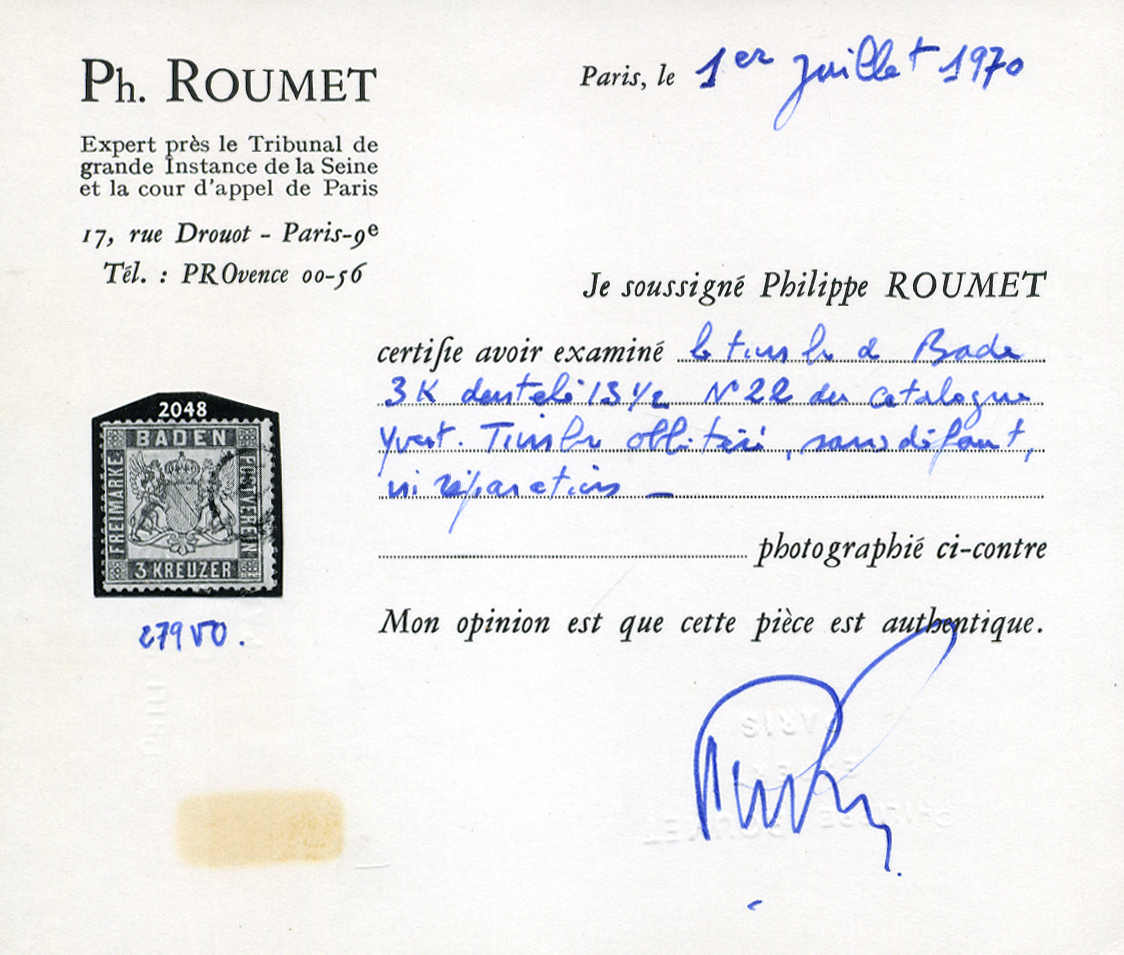 Ph. ROUMET
Expert près le Tribunal de
grande Instance de la Seine
et la cour d'appel de Paris
17, rue Drouot - Paris-9e
Tél. : PROvence 00-56
Paris, le 1er juillet 1970
Je soussigné Philippe ROUMET
certifie avoir examiné le timbre de Bade
3K dentelé 13 1/2 N° 22 du catalogue
Yvert. Timbre oblitéré, sans défaut,
ni réparations —
photographié ci-contre
Mon opinion est que cette pièce est authentique.
2048
BADEN
FREIMARKE
POSTVEREIN
3 KREUZER
PARIS